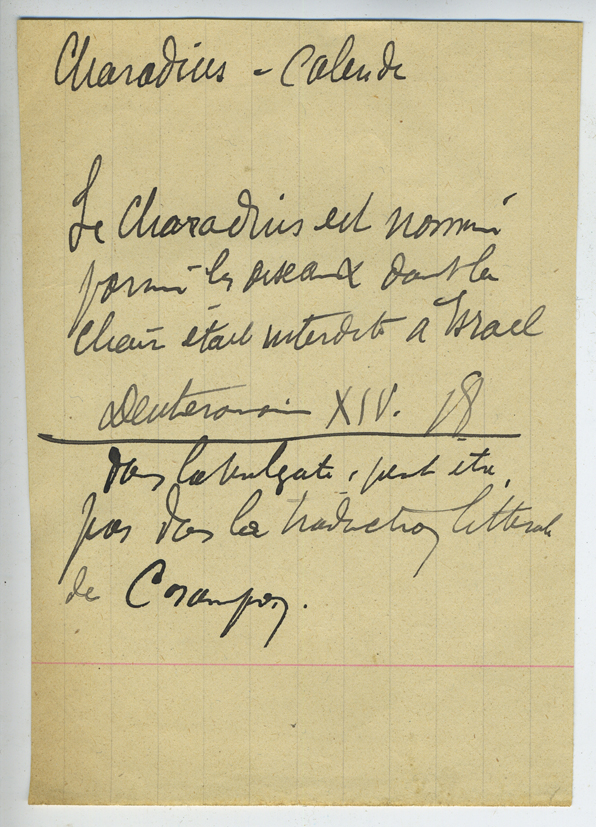 Charadius - Calendr
Le Charadius est nommé
parmi les oiseaux dont la
chair était interdite à Israel
Deuteronome XIV. 18
dans la vulgate, peut être,
pas dans la traduction littérale
de Crampon.